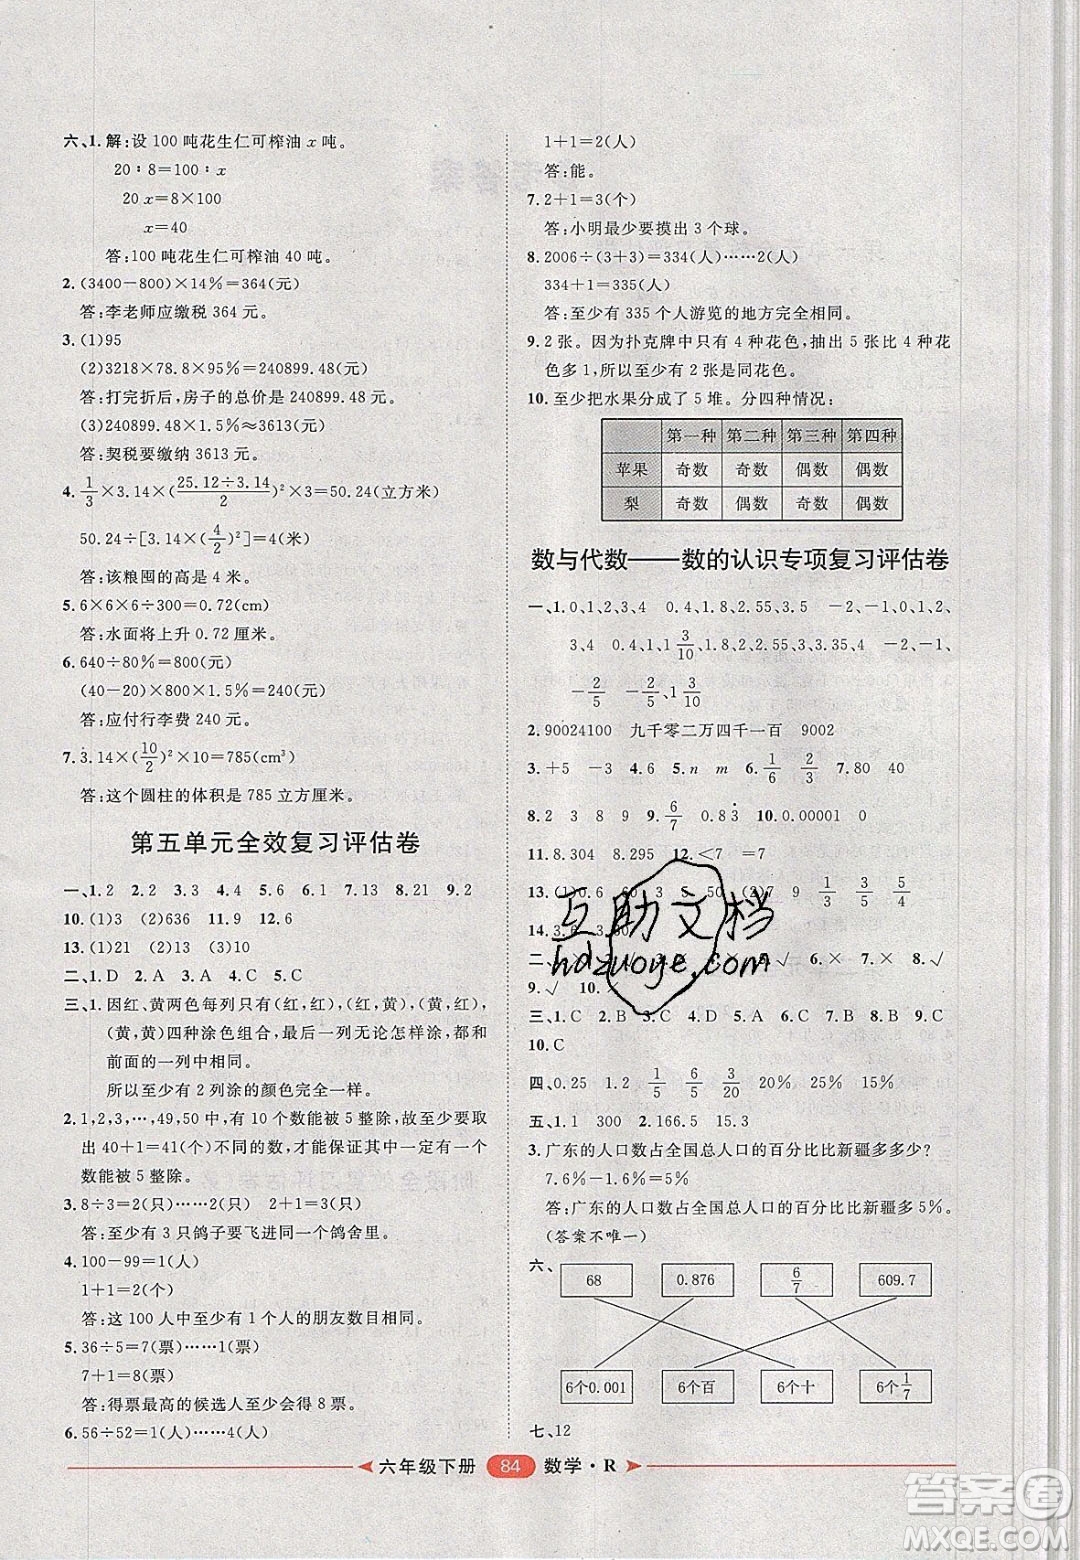 六、1. 解:设 100 吨花生仁可榨油 x 吨。
20∶8=100∶x
20x=8×100
x=40
答:100 吨花生仁可榨油 40 吨。
2. (3400-800)×14%=364(元)
答:李老师应缴税 364 元。
3. (1)95
(2)3218×78.8×95%=240899.48(元)
答:打完折后,房子的总价是 240899.48 元。
(3)240899.48×1.5%≈3613(元)
答:契税要缴纳 3613 元。
4. 1/3×3.14×(25.12÷3.14/2)²×3=50.24(立方米)
50.24÷[3.14×(4/2)²]=4(米)
答:该粮囤的高是 4 米。
5. 6×6×6÷300=0.72(cm)
答:水面将上升 0.72 厘米。
6. 640÷80%=800(元)
(40-20)×800×1.5%=240(元)
答:应付行李费 240 元。
7. 3.14×(10/2)²×10=785(cm³)
答:这个圆柱的体积是 785 立方厘米。
第五单元全效复习评估卷
一、1. 2 2. 2 3. 4 4. 5 5. 6 6. 11 7. 13 8. 21 9. 2
10. (1)3 (2)636 11. 9 12. 6
13. (1)21 (2)13 (3)10
二、1. D 2. A 3. A 4. D 5. C
三、1. 因红、黄两色每列只有(红,红),(红,黄),(黄,红),
(黄,黄)四种涂色组合,最后一列无论怎样涂,都和
前面的一列中相同。
所以至少有 2 列涂的颜色完全一样。
2. 1,2,3,…,49,50中,有 10 个数能被 5 整除,故至少要取
出 40+1=41(个)不同的数,才能保证其中一定有一个
数能被 5 整除。
3. 8÷3=2(只)……2(只) 2+1=3(只)
答:至少有 3 只鸽子要飞进同一个鸽舍里。
4. 100-99=1(人)
1+1=2(个)
答:这 100 人中至少有 1 个人的朋友数目相同。
5. 36÷5=7(票)……1(票)
7+1=8(票)
答:得票最高的候选人至少会得 8 票。
6. 56÷52=1(人)……4(人)
1+1=2(人)
答:能。
7. 2+1=3(个)
答:小明最少要摸出 3 个球。
8. 2006÷(3+3)=334(人)……2(人)
334+1=335(人)
答:至少有 335 个人游览的地方完全相同。
9. 2 张。因为扑克牌中只有 4 种花色,抽出 5 张比 4 种花
色多 1,所以至少有 2 张是同花色。
10. 至少把水果分成了 5 堆。分四种情况:
第一种 第二种 第三种 第四种
苹果 奇数 奇数 偶数 偶数
梨 奇数 偶数 奇数 偶数
数与代数——数的认识专项复习评估卷
一、1. 0、1、2、3、4 0.4、1.8、2.55、3.5 -2、-1、0、1、2、
3、4 0.4、1 3/10、1.8、2.55、3.5、3.75、4 -2、-1、
-2/5 -2/5、1 3/10
2. 90024100 九千零二万四千一百 9002
3. +5 -3 4. 6 5. n m 6. 1/6 2/3 7. 80 40
8. 2 3 8 12 9. 6/7 0.83̇ 10. 0.00001 0
11. 8.304 8.295 12. <7 =7
13. (1)0.6 60 3 5 50 (2)7 9 1/3 4/9
14. 3.6 3.60
二、 7. × 8. √
9. √ 10. ×
三、1. C 2. B 3. C 4. D 7. A 8. B 9. B
10. C
四、0.25 1.2 1/5 6/5 3/20 20% 25% 15%
五、1. 1 300 2. 166.5 15.3
3. 广东的人口数占全国总人口的百分比比新疆多多少?
7.6%-1.6%=5%
答:广东的人口数占全国总人口的百分比比新疆多 5%。
(答案不唯一)
六、
68 0.876 6/7 609.7
6个0.001 6个百 6个十 6个1/7
七、12
六年级下册 84 数学·R
互助文档
hdzuoye.com
答案圈
MXQE.COM